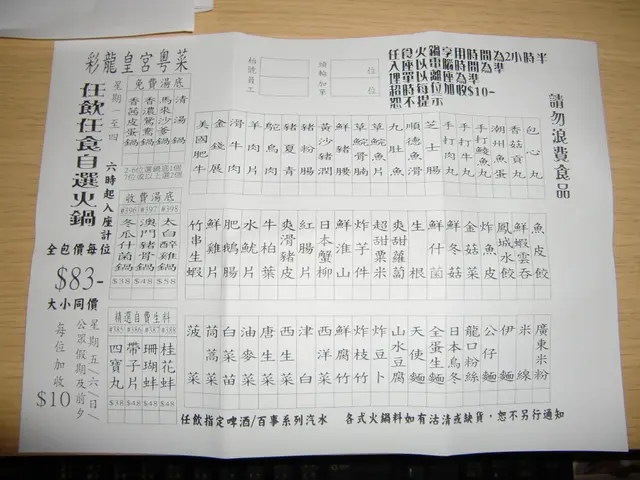 彩龍皇宮粵菜
任飲任食自選火鍋
星期一至四
六時起入座計
全包價每位
$83-
大小同價
星期五/六/日/
公眾假期及前夕
每位加收
$10
免費湯底
清湯鍋
馬來沙爹鍋
香濃鴛鴦鍋
香茜皮蛋鍋
2-6位選鍋底1個
7位或以上選2個
收費湯底
#396 #397 #398
冬瓜什菌鍋
澳門豬骨鍋
太白醉雞鍋
$38 $48 $58
精選自費生料
#385 #386 #387 #388
四寶丸
帶子片
珊瑚蚌
桂花蚌
$38 $48 $48 $48
枱號
員工
頭輪 位
加單 位
任食火鍋享用時間為2小時半
入座以電腦時間為準
埋單以離座為準
超時每位加收$10-
恕不提示
請勿浪費食品
美國肥牛
金錢展
滑牛肉
羊肉片
鴕鳥肉
豬夏青
豬粉腸
黃沙豬潤
鮮豬腰
草鯇骨腩
草鯇魚片
九肚魚
順德魚滑
芝士腸
手打肉丸
手打牛丸
手打鯪魚丸
潮州魚蛋
香菇貢丸
包心丸
竹串生蝦
鮮雞片
肥鵝腸
水魷片
牛柏葉
爽滑豬皮
紅腸片
日本蟹柳
鮮淮山
炸芋件
超甜粟米
爽甜蘿蔔
生根
鮮什菌
鮮冬菇
金菇菜
炸魚皮
鳳城水餃
鮮蝦雲吞
魚皮餃
菠菜
茼蒿菜
白菜苗
油麥菜
唐生菜
西生菜
津白
西洋菜
鮮腐竹
炸枝竹
炸豆卜
山水豆腐
天使麵
全蛋生麵
日本烏冬
龍口粉絲
公仔麵
伊麵
米線
廣東米粉
任飲指定啤酒/百事系列汽水 各式火鍋料如有沽清或缺貨,恕不另行通知